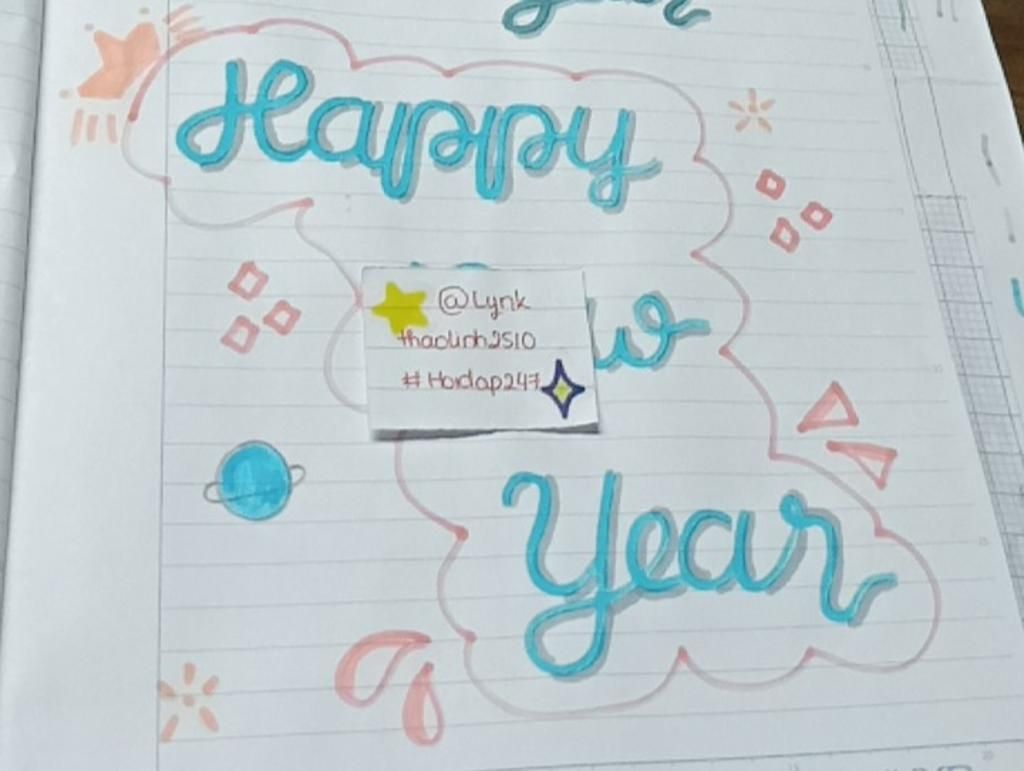 Happy
@Lynk
thaolinh2510
#Hoidap247
Year